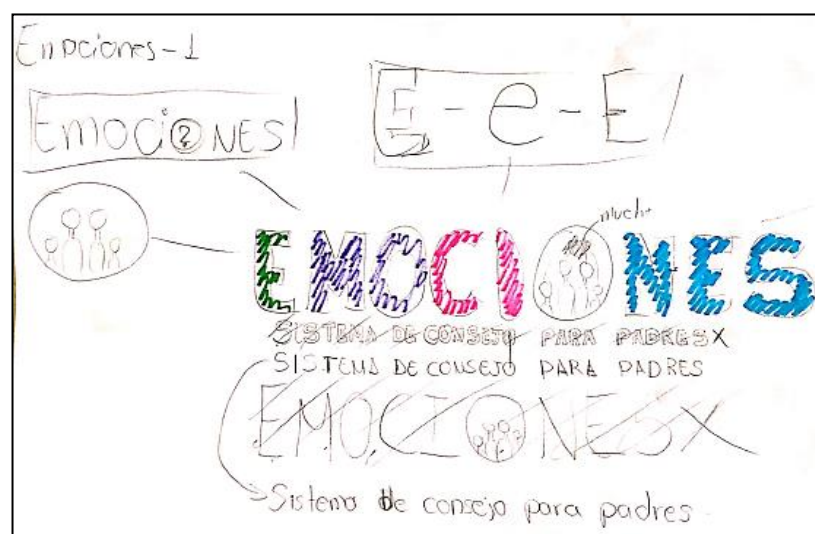 Emociones-1
EmociONES
E - e - E
mucho
EMOCIONES
SISTEMA DE CONSEJO PARA PADRES X
SISTEMA DE CONSEJO PARA PADRES
EMOCIONES X
Sistema de consejo para padres